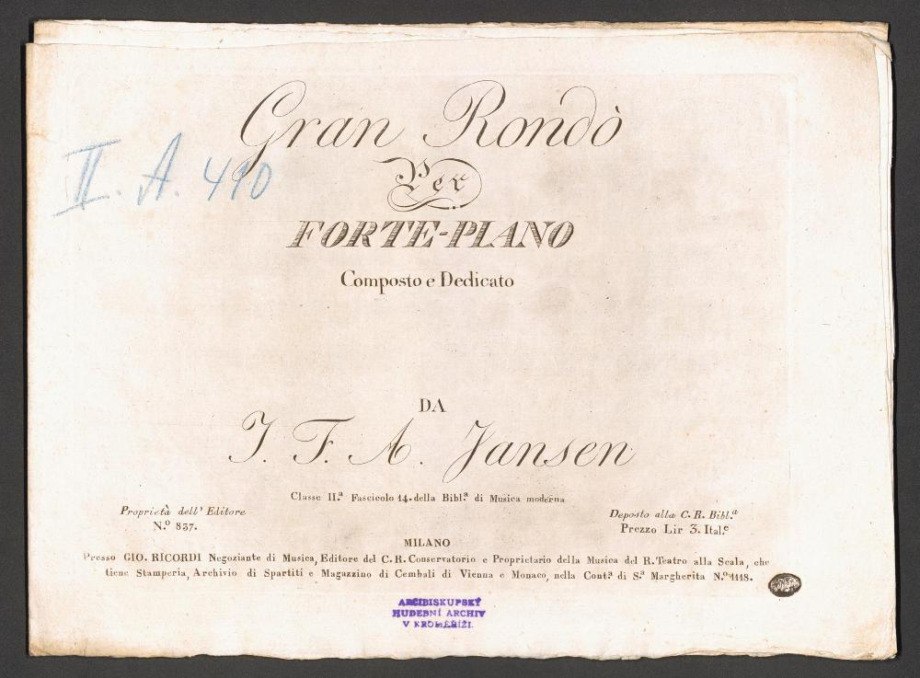 Gran Rondò
Per
FORTE-PIANO
Composto e Dedicato
II. A. 410
DA
J. F. A. Jansen
Classe II.ª Fascicolo 14. della Bibl.ª di Musica moderna
Proprietà dell' Editore
N.º 837.
Deposto alla C. R. Bibl.ª
Prezzo Lir 3. Ital.e
MILANO
Presso GIO. RICORDI Negoziante di Musica, Editore del C. R. Conservatorio e Proprietario della Musica del R. Teatro alla Scala, che
tiene Stamperia, Archivio di Spartiti e Magazzino di Cembali di Vienna e Monaco, nella Cont.ª di S.ª Margherita N.º 1118.
ARCIBISKUPSKÝ
HUDEBNÍ ARCHIV
V KROMĚŘÍŽI.